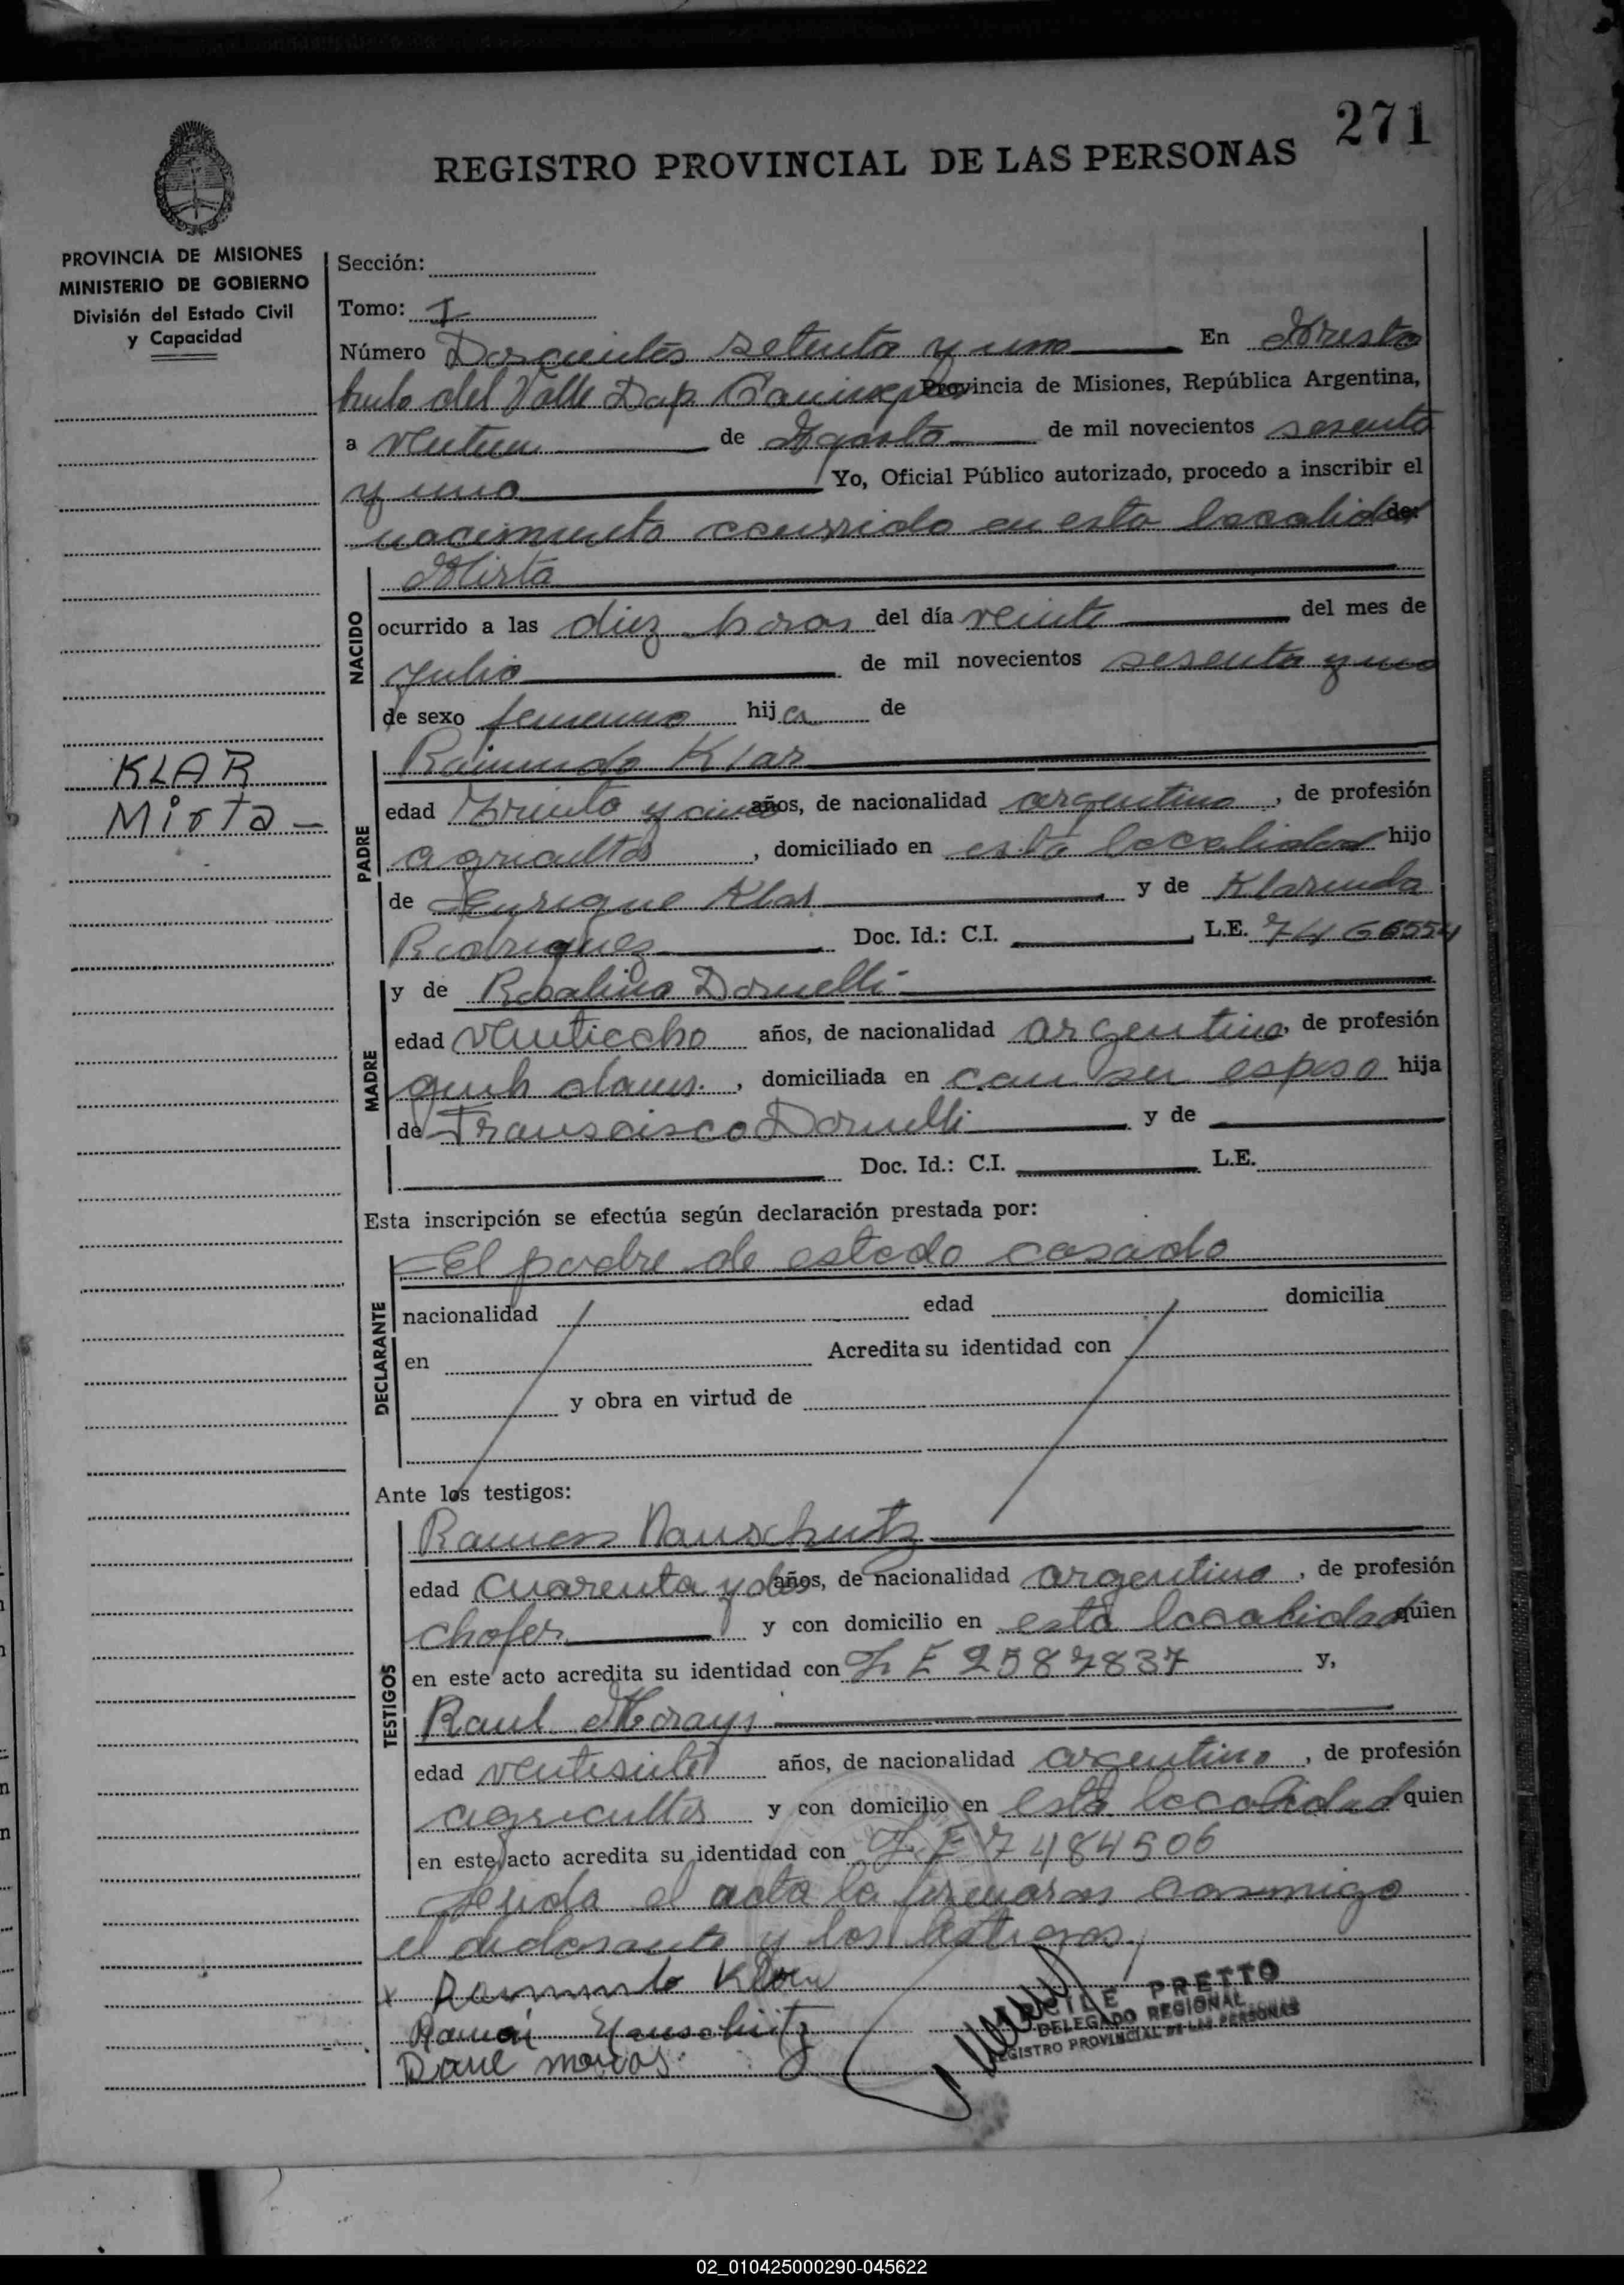 271
REGISTRO PROVINCIAL DE LAS PERSONAS
PROVINCIA DE MISIONES
MINISTERIO DE GOBIERNO
División del Estado Civil
y Capacidad
Sección:
Tomo: I
Número Doscientos setenta y uno En Aristo
bulo del Valle Dep. Provincia de Misiones, República Argentina,
a veitiun de Agosto de mil novecientos sesenta
y uno Yo, Oficial Público autorizado, procedo a inscribir el
nacimiento ocurrido en esta localidad de:
Mirta
NACIDO
ocurrido a las diez horas del día veinte del mes de
Julio de mil novecientos sesenta y uno
de sexo femenino hija de
KLAR
Mirta -
PADRE
Raimundo Klar
edad Treinta y cinco años, de nacionalidad argentino, de profesión
agricultor, domiciliado en esta localidad hijo
de Enrique Klar y de Klarinda
Rodriguez Doc. Id.: C.I. L.E. 7466554
MADRE
y de Rosalina Dornelli
edad veintiocho años, de nacionalidad argentina, de profesión
domiciliada en con su esposo hija
de Franscisco Dornelli y de
Doc. Id.: C.I. L.E.
Esta inscripción se efectúa según declaración prestada por:
DECLARANTE
El padre de estado casado
nacionalidad edad domicilia
en Acredita su identidad con
y obra en virtud de
Ante los testigos:
TESTIGOS
Ramon
edad cuarenta y dos años, de nacionalidad argentino, de profesión
chofer y con domicilio en esta localidad quien
en este acto acredita su identidad con L E 2587837 y,
Raul Morays
edad veitisiete años, de nacionalidad argentino, de profesión
agricultor y con domicilio en esta localidad quien
en este acto acredita su identidad con L E 7484506
Leida el acta la firmaron conmigo
el declarante y los testigos.
x Raimundo Klar
Ramon
PRETTO
DELEGADO REGIONAL
REGISTRO PROVINCIAL DE LAS PERSONAS
02_010425000290-045622